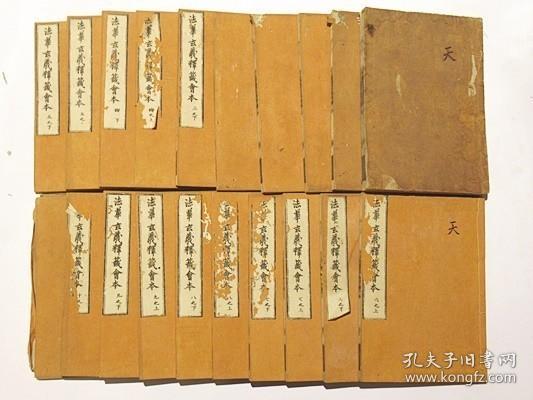 法華玄義釋籤會本 五之下
法華玄義釋籤會本 五之上
法華玄義釋籤會本 四下
法華玄義釋籤會本 四之上
法華玄義釋籤會本 三之下
天
會本 十之上
法華玄義釋籤會本 九之下
法華玄義釋籤會本 九之上
法華玄義釋籤會本 八之下
義釋籤會本 八之上
法華玄義釋籤會本 七之下
法華玄義釋籤會本 七之上
法華玄義釋籤會本 六之下
法華玄義釋籤會本 六之上
天
孔夫子旧书网
www.kongfz.com